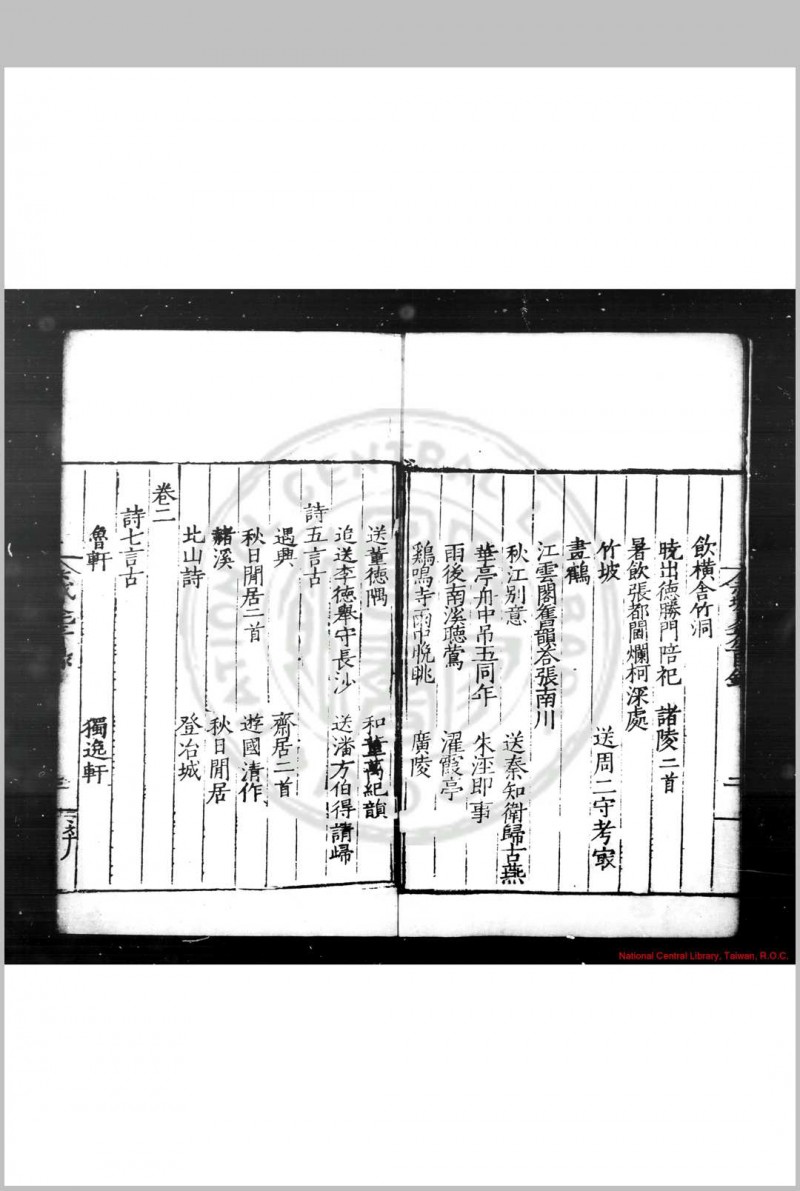 飲橫舍竹洞
曉出德勝門陪祀 諸陵二首
暑飲張都閫爛柯深處
竹坡 送周二守考㝡
畫鶴
江雲閣舊韻荅張南川
秋江別意 送秦知衛歸古燕
華亭舟中吊五同年 朱涇即事
雨後南溪聽鶯 濯霞亭
鷄鳴寺雨中晚眺 廣陵
送董德隅 和董萬紀韻
追送李德舉守長沙 送潘方伯得請歸
詩五言古
遇興 齋居二首
秋日閒居二首 遊國清作
赭溪 秋日閒居
北山詩 登冶城
卷二
詩七言古
魯軒 獨逸軒
National Central Library, Taiwan, R.O.C.